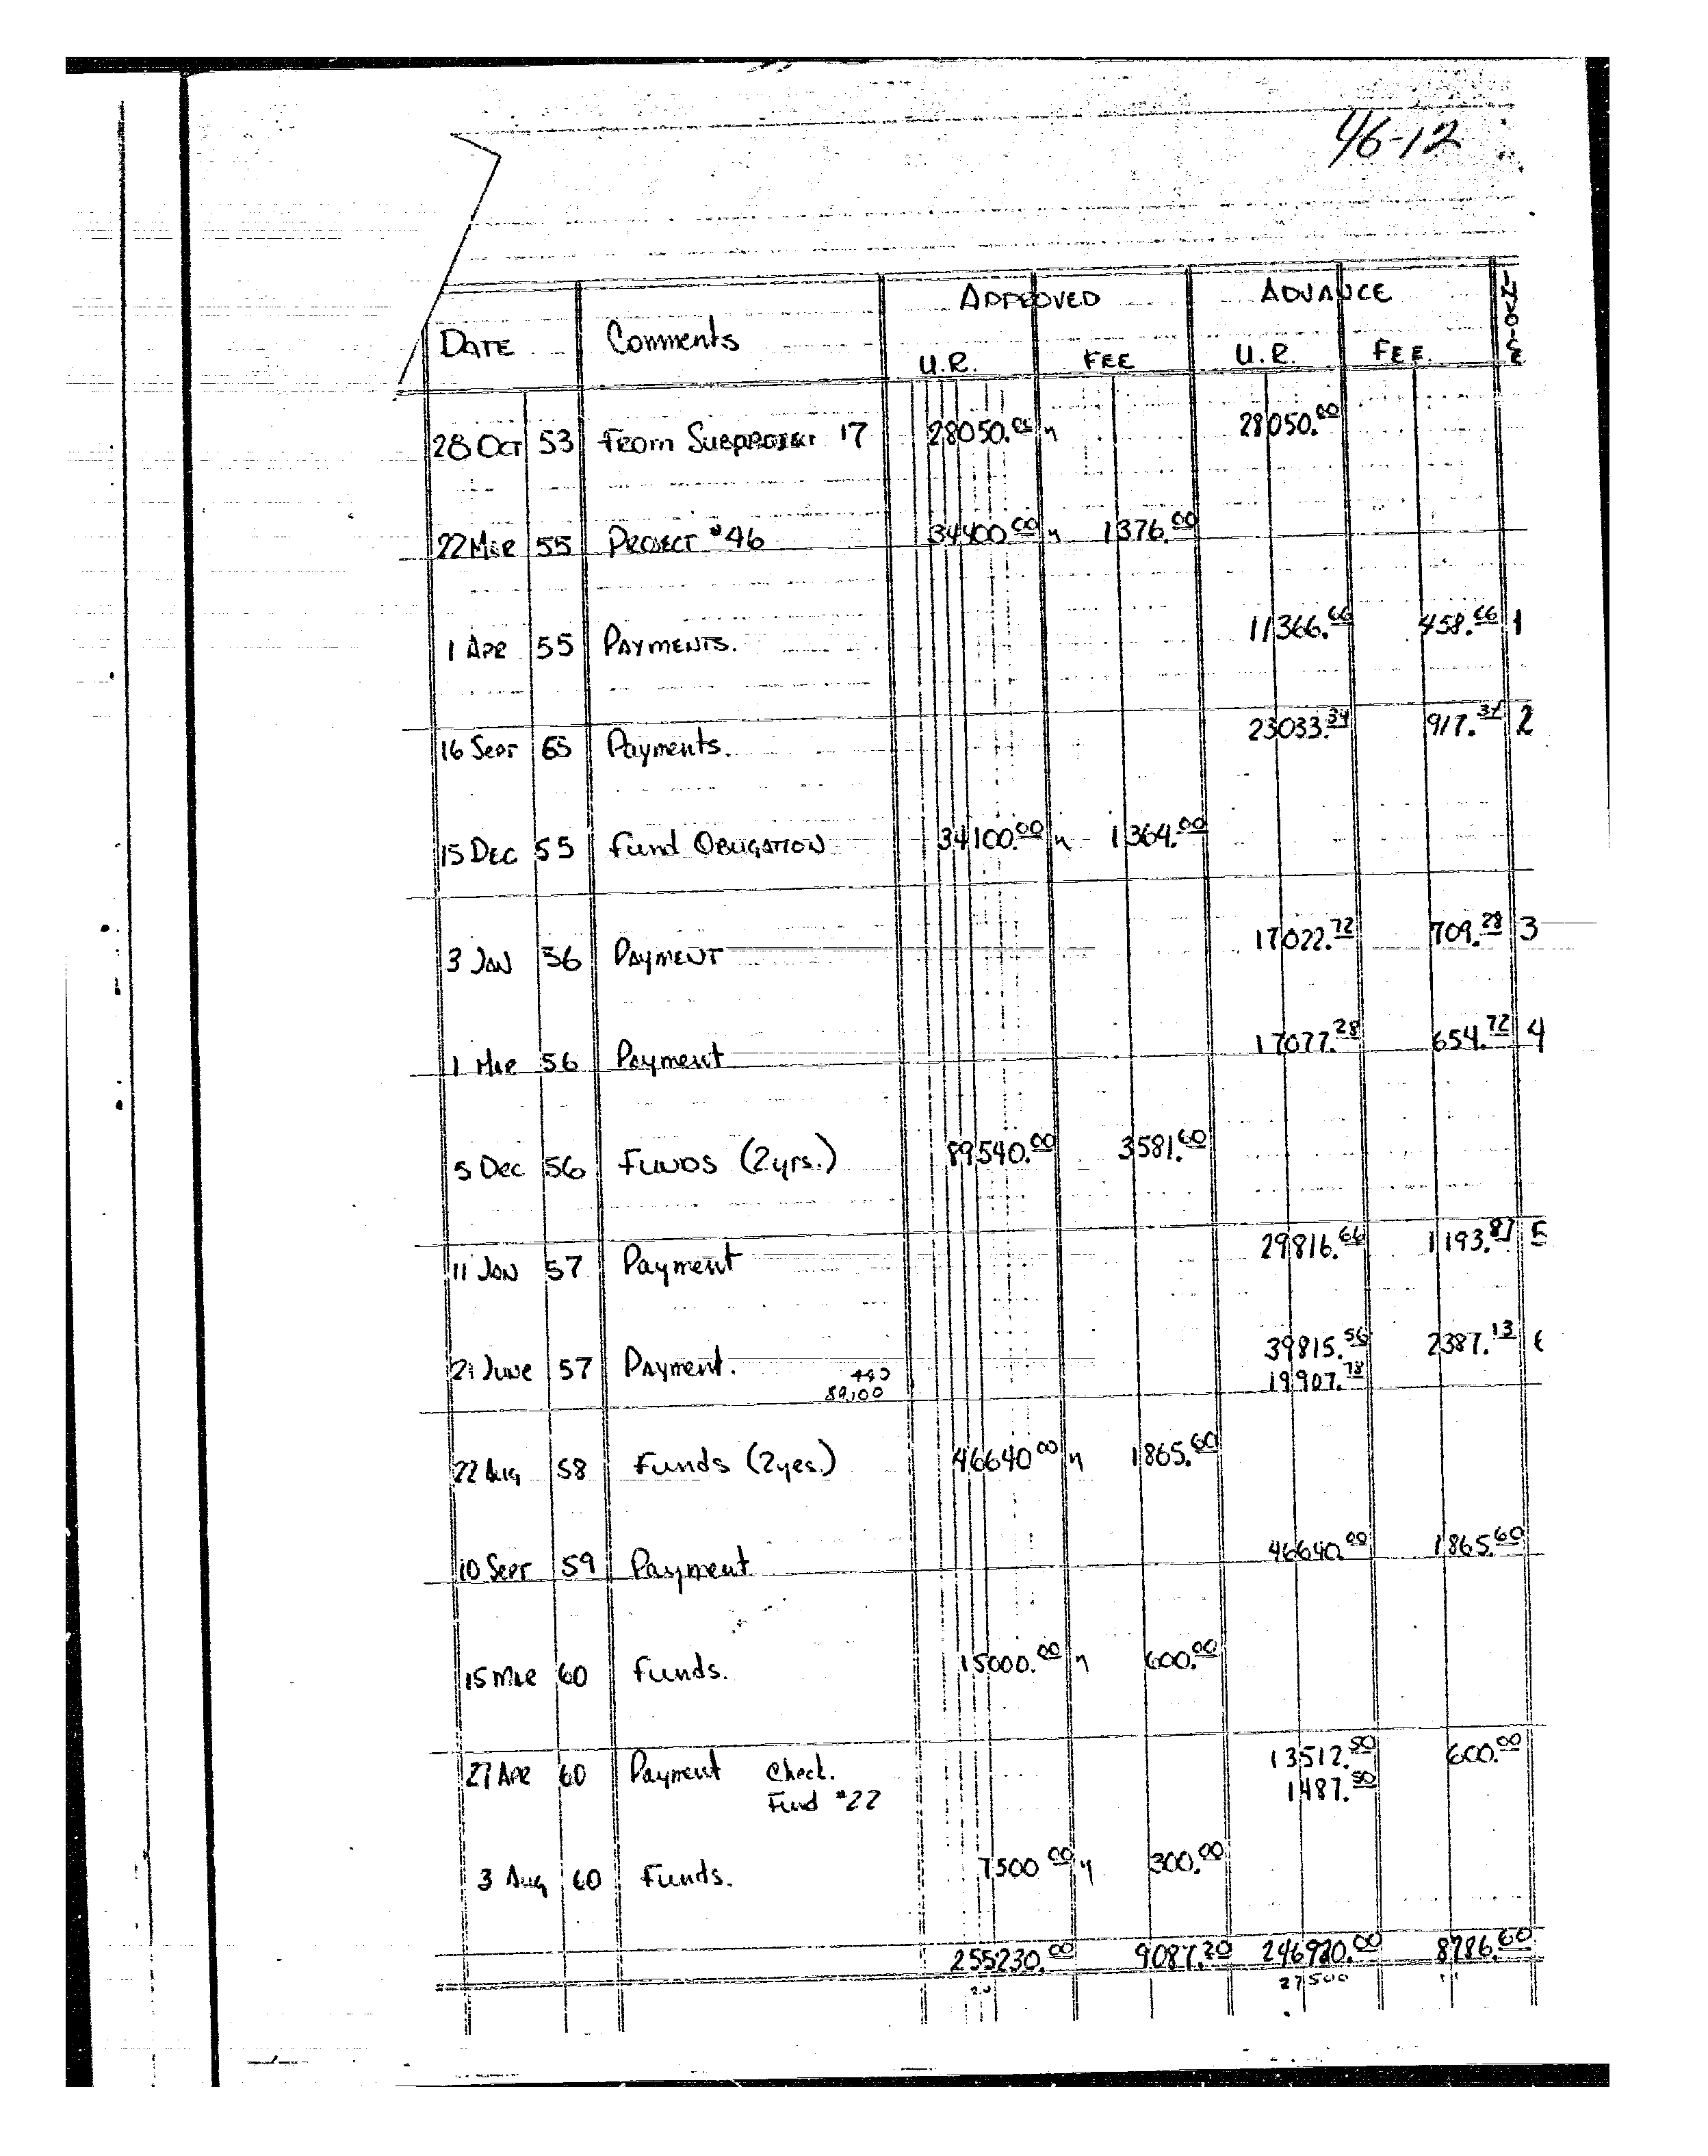 46-12
APPROVED ADVANCE INVOICE
DATE Comments U.R. FEE U.R. FEE.
28 OCT 53 FROM SUBPROJECT 17 28050.00 28050.00
22 MAR 55 PROJECT #46 34400.00 1376.00
1 APR 55 PAYMENTS. 11366.66 458.66 1
16 SEPT 55 Payments. 23033.34 917.34 2
15 DEC 55 Fund OBLIGATION 34100.00 1364.00
3 JAN 56 PAYMENT 17022.72 709.28 3
1 MAR 56 Payment 17077.28 654.72 4
5 Dec 56 FUNDS (2yrs.) 89540.00 3581.60
11 JAN 57 Payment 29816.66 1193.87 5
21 June 57 Payment. 39815.56 2387.13 6
89,100 19907.78
22 Aug 58 Funds (2yrs.) 46640.00 1865.60
10 SEPT 59 Payment 46640.00 1865.60
15 MAR 60 Funds. 15000.00 600.00
27 APR 60 Payment Check. 13512.50 600.00
Fund #22 1487.50
3 Aug 60 Funds. 7500.00 300.00
255230.00 9087.20 8786.60
27500